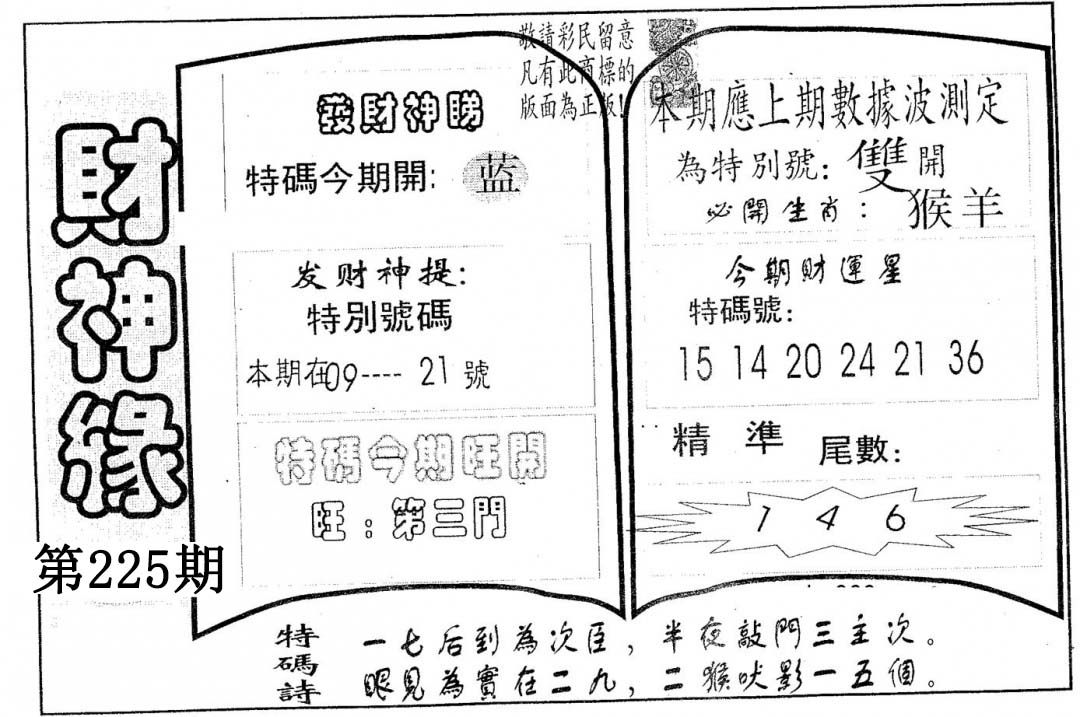 財神緣
第225期
敬請彩民留意
凡有此商標的
版面為正版!
發財神睇
特碼今期開: 蓝
发财神提:
特別號碼
本期在09---- 21 號
特碼今期旺開
旺:第三門
本期應上期數據波測定
為特別號: 雙開
必開生肖: 猴羊
今期財運星
特碼號:
15 14 20 24 21 36
精準 尾數:
1 4 6
特碼詩
一七后到為次臣,半夜敲門三主次。
眼見為實在二九,二猴吠影一五個。